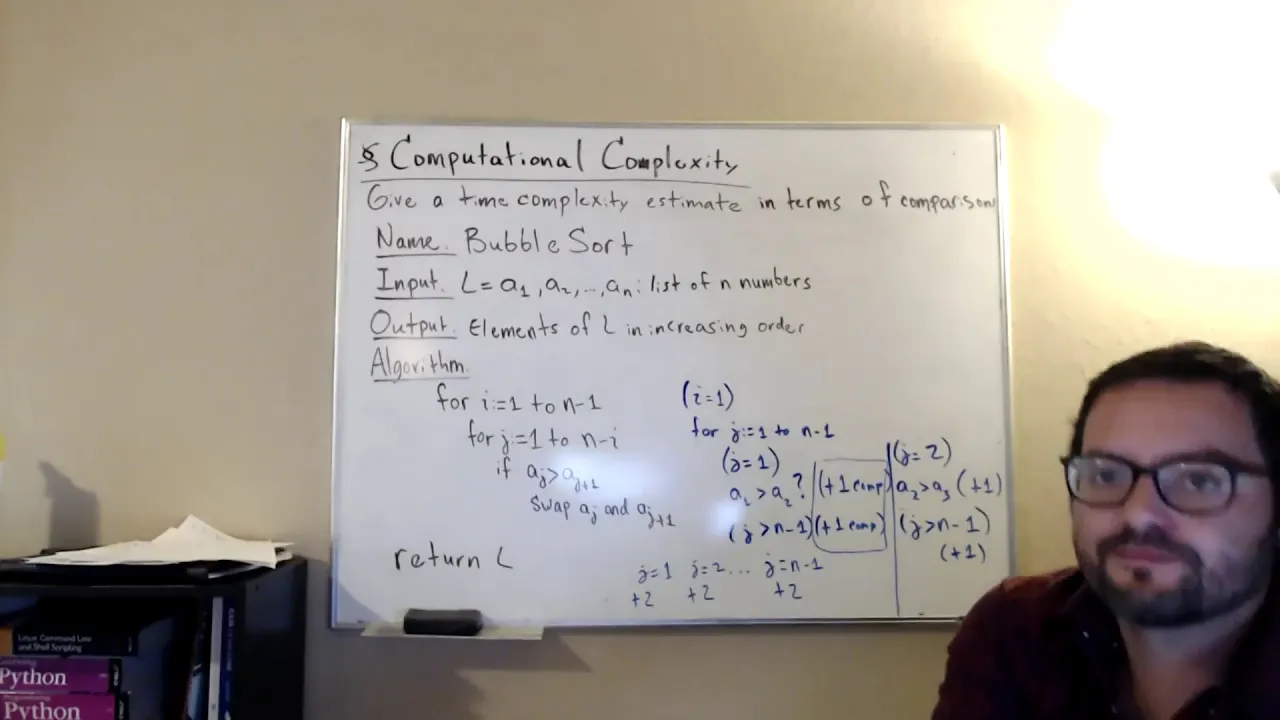 § Computational Complexity
Give a time complexity estimate in terms of comparisons
Name. Bubble Sort
Input. L = a₁, a₂, ..., aₙ: list of n numbers
Output. Elements of L in increasing order
Algorithm.
for i:=1 to n-1
for j:=1 to n-i
if aⱼ > aⱼ₊₁
swap aⱼ and aⱼ₊₁
return L
(i=1)
for j:=1 to n-1
(j=1)
a₁ > a₂? (+1 comp)
(j > n-1) (+1 comp)
(j=2)
a₂ > a₃ (+1)
(j > n-1)
(+1)
j=1 j=2 ... j=n-1
+2 +2 +2
Linux Command Line
and Shell Scripting
Python
Python